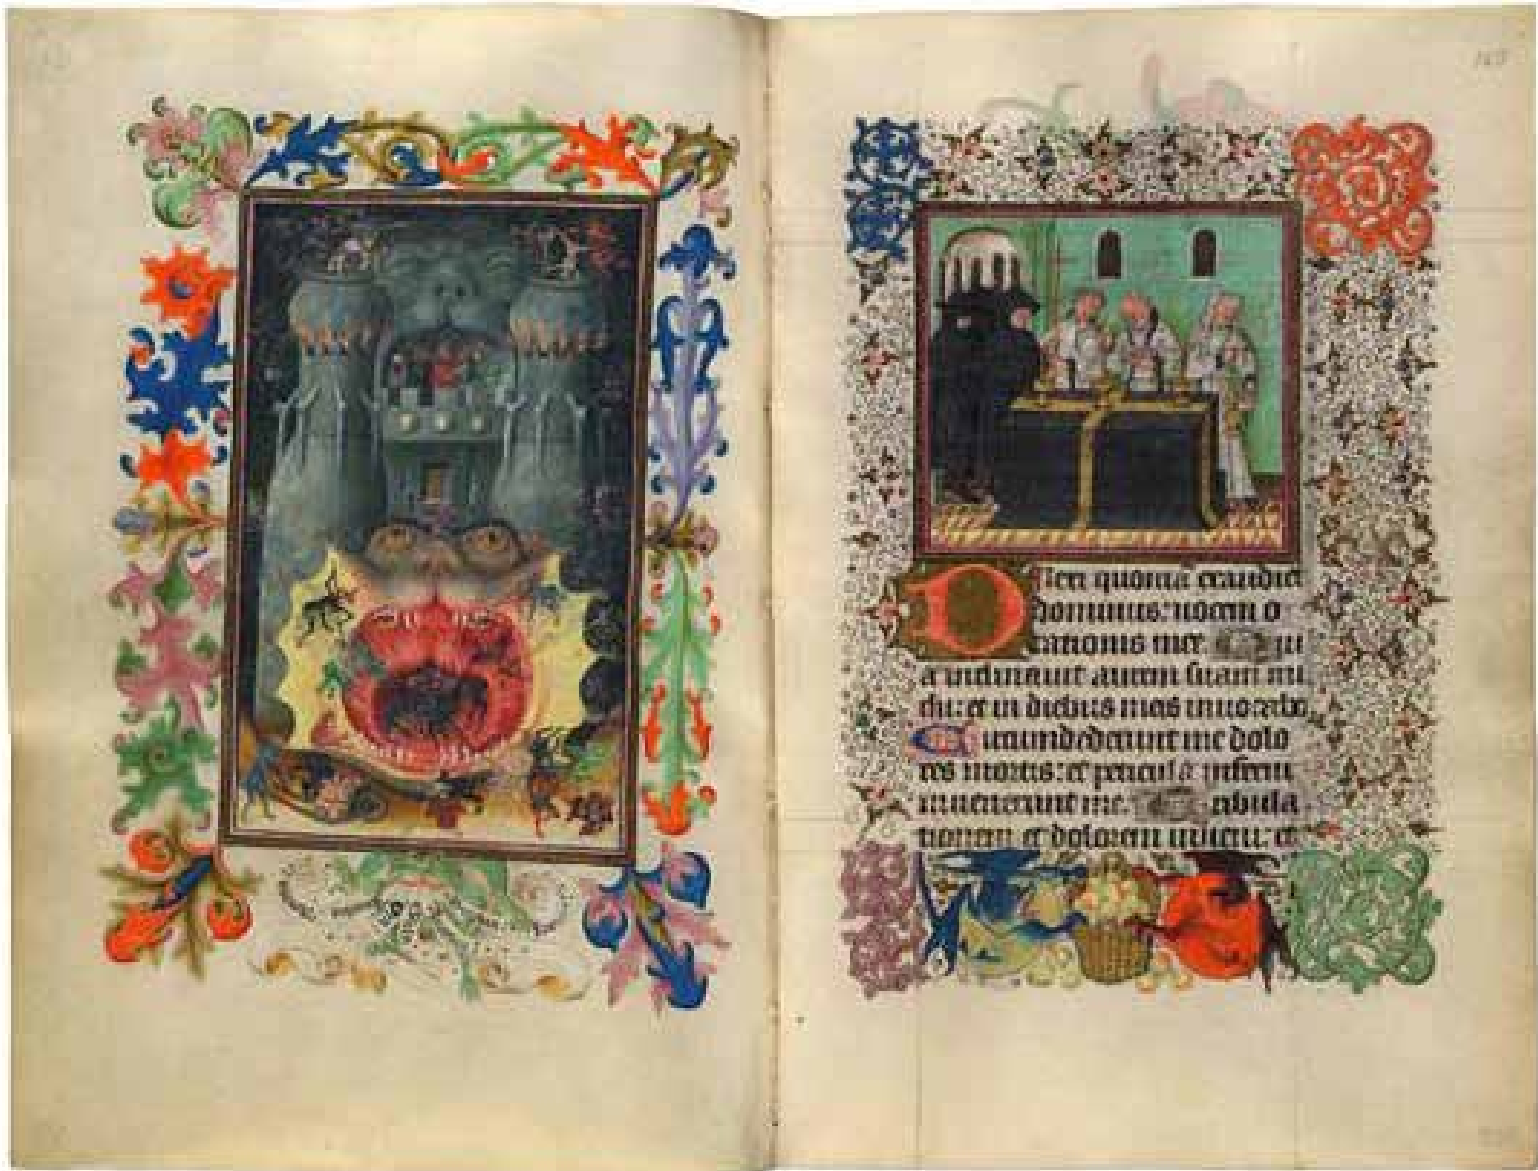 Dilexi quoniā exaudiet
dominus: uocem o
rationis mee. Qui
a inclinauit aurem suam mi
chi: et in diebus meis inuocabo.
Circumdederunt me dolo
res mortis: et pericula inferni
inuenerunt me. Tribula
tionem et dolorem inueni: et